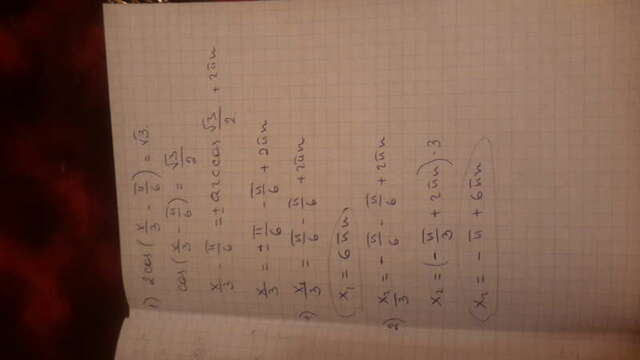 1) 2cos(x/3 - π/6) = √3
cos(x/3 - π/6) = √3/2
x/3 - π/6 = ± arccos √3/2 + 2πn
x/3 = ± π/6 - π/6 + 2πn
1) x₁/3 = π/6 - π/6 + 2πn
x₁ = 6πn
2) x₂/3 = - π/6 - π/6 + 2πn
x₂ = (- π/3 + 2πn) · 3
x₂ = - π + 6πn